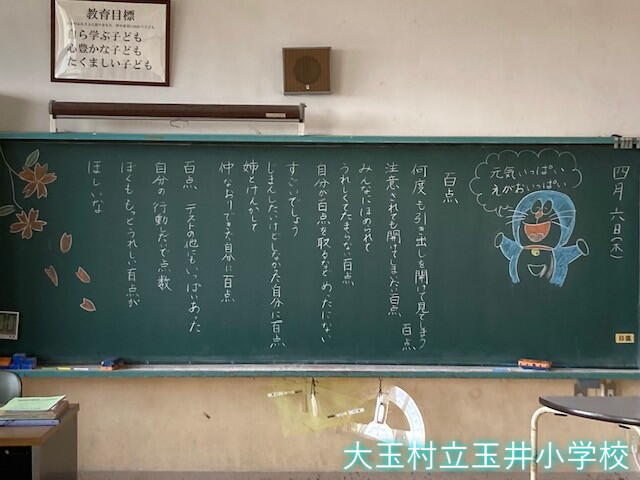 教育目標
自ら学ぶ子ども
心豊かな子ども
たくましい子ども
四月六日(木)
日直
元気いっぱい
えがおいっぱい
百点
何度も引き出しを開けて見てしまう
注意されても開けてしまいたい百点 百点
みんなにほめられて
うれしくてたまらない百点
自分が百点を取るなどめったにない
すごいでしょう
じまんしたいけどしなかった自分に百点
姉とけんかして
仲なおりできた自分に百点
百点 テストの他にもいっぱいあった
自分の行動しだいで点数
ぼくももっとうれしい百点が
ほしいな
大玉村立玉井小学校